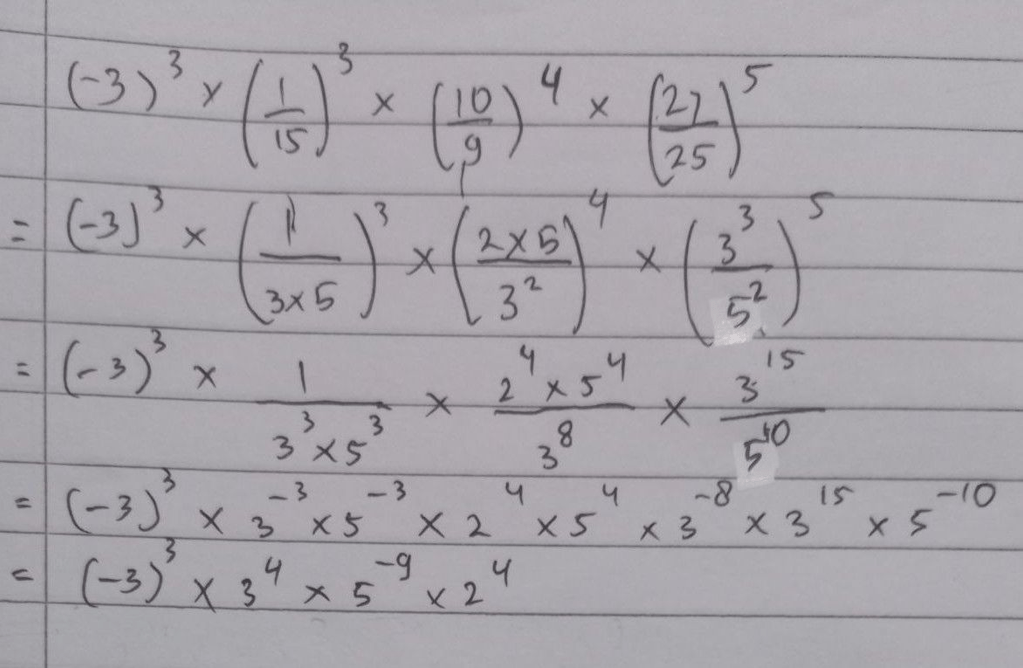 (-3)³ × (1/15)³ × (10/9)⁴ × (27/25)⁵
= (-3)³ × (1/(3×5))³ × ((2×5)/3²)⁴ × (3³/5²)⁵
= (-3)³ × 1/(3³×5³) × (2⁴×5⁴)/3⁸ × 3¹⁵/5¹⁰
= (-3)³ × 3⁻³ × 5⁻³ × 2⁴ × 5⁴ × 3⁻⁸ × 3¹⁵ × 5⁻¹⁰
= (-3)³ × 3⁴ × 5⁻⁹ × 2⁴